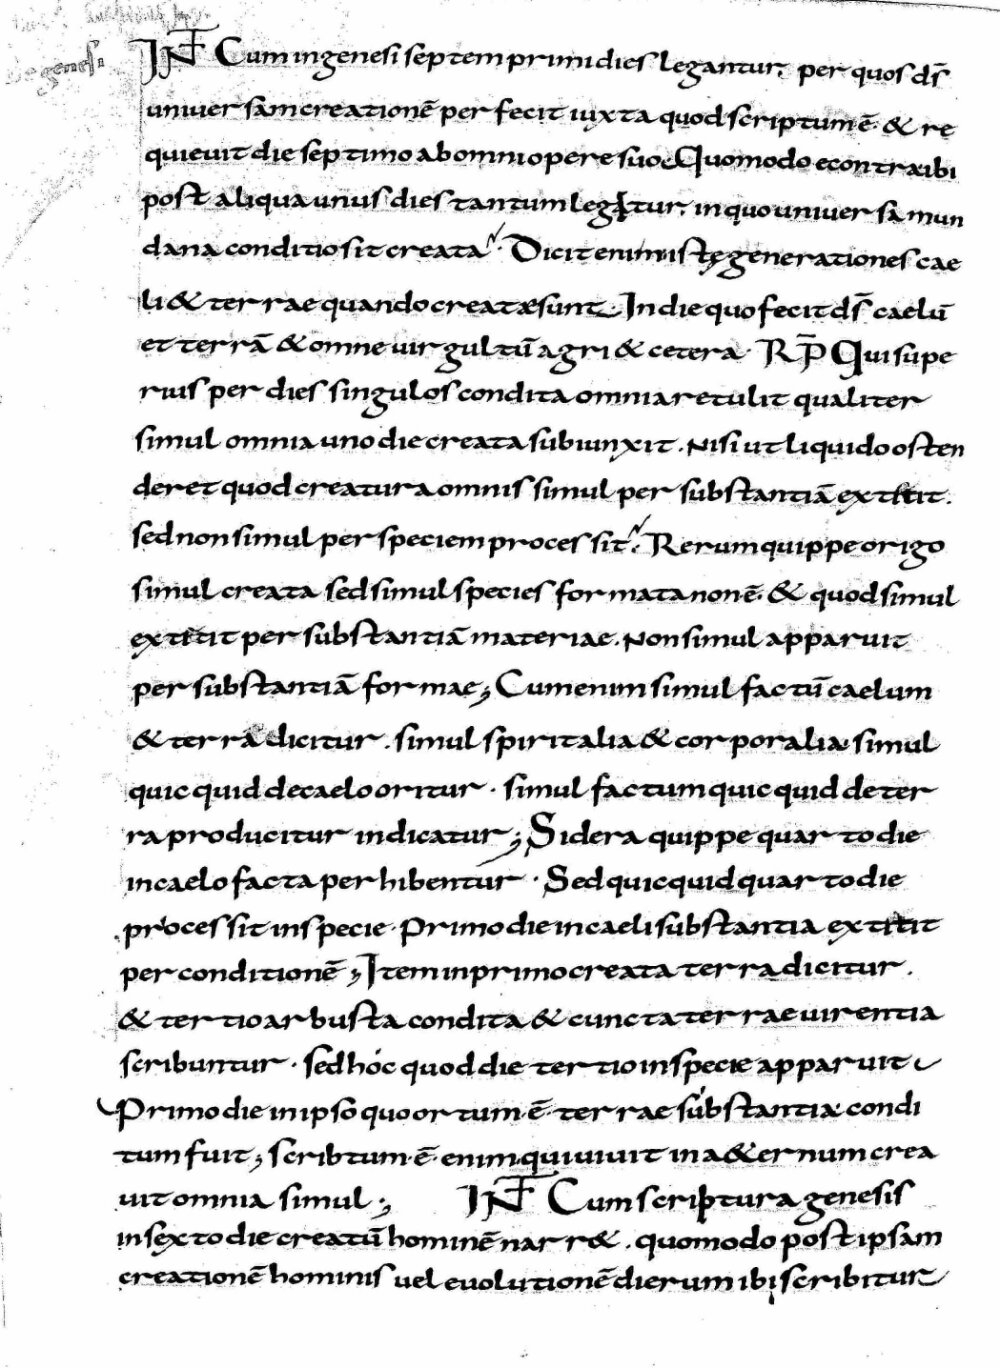 De genesi
INT Cum in genesi septem primi dies legantur. per quos d̄s
universam creationē perfecit iuxta quod scriptum ē. & re
quievit die septimo ab omni opere suo. Quomodo econtra ibi
post aliqua unus dies tantum legitur. in quo universa mun
dana conditio sit creata. Dicit enim istę generationes cae
li & terrae quando creatae sunt. In die quo fecit d̄s caelū
et terrā & omne virgultū agri & cetera. RP̄ Qui supe
rius per dies singulos condita omnia retulit qualiter
simul omnia uno die creata subiunxit. Nisi ut liquido osten
deret quod creatura omnis simul per substantiā extitit.
sed non simul per speciem processit. Rerum quippe origo
simul creata sed simul species formata non ē. & quod simul
extitit per substantiā materiae. Non simul apparuit
per substantiā formae; Cum enim simul factū caelum
& terra dicitur. simul spiritalia & corporalia. simul
quicquid de caelo oritur. simul factum quicquid de ter
ra producitur indicatur; Sidera quippe quarto die
in caelo facta perhibentur. Sed quicquid quarto die
processit in specie. Primo die in caeli substantia extitit
per conditionē; Item in primo creata terra dicitur.
& tertio arbusta condita & cuncta terrae virentia
scribuntur. sed hóc quod die tertio in specie apparuit
Primo die in ipso quo ortum ē terrae substantia condi
tum fuit; scribtum ē. enim qui vivit in a&ernum crea
vit omnia simul; INT Cum scriptura genesis
in sexto die creatū hominē narr&. quomodo post ipsam
creationē hominis vel evolutionē dierum ibi scribitur